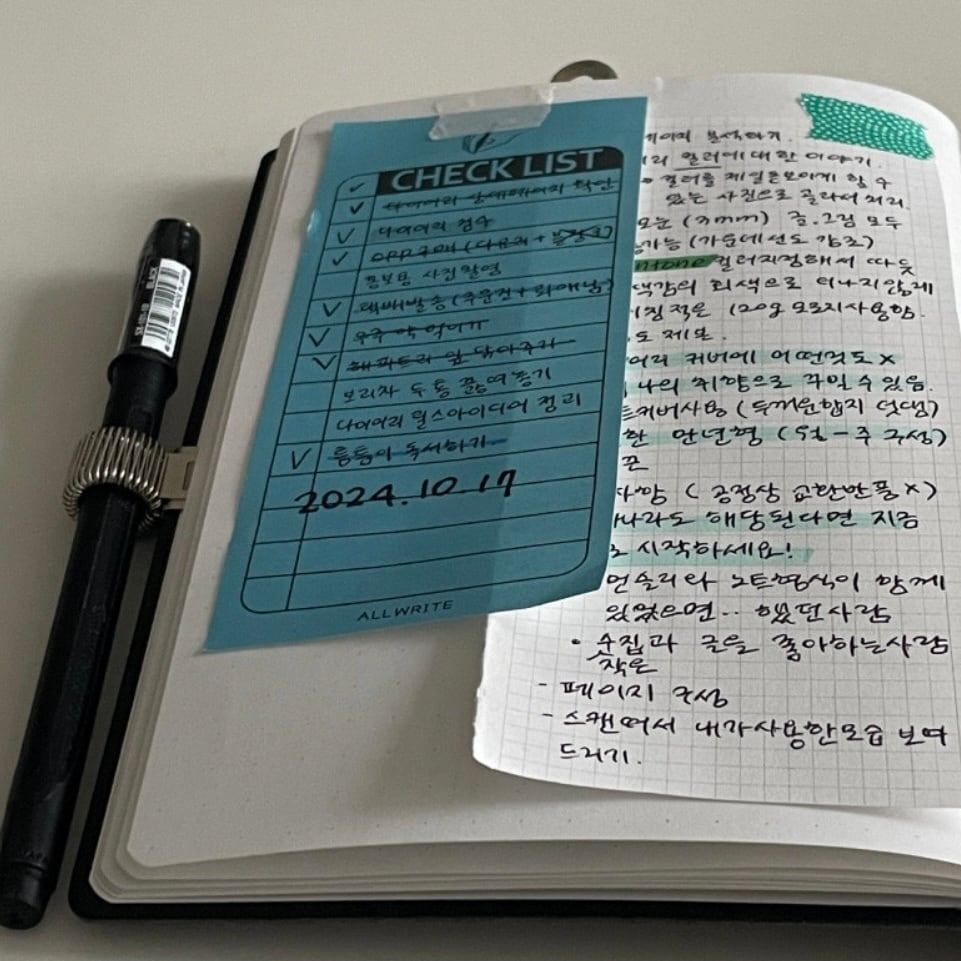 CHECK LIST
다이어리 상세페이지 확인
다이어리 검수
OPP구매 (다용지 +
홍보용 사진촬영
택배발송 (주문건 +
우주 약 먹이기
해파트라 잎 닦아주기
보리차 두통 끓여놓기
다이어리 필스아이디어 정리
틈틈이 독서하기
2024.10.17
ALLWRITE
분석하기.
컬러에 대한 이야기.
컬러를 제일 돋보이게 할 수
있는 사진으로 골라서 처리.
모눈 (3mm) 글.그림 모두
가능 (가운데 선도 강조)
컬러지정해서 따뜻
색감의 회색으로 튀지않게
적은 120g 모조지사용함.
도 제본.
커버에 어떤것도 x
나의 취향으로 꾸밀 수 있음.
커버사용 (두꺼운합지 덧댐)
한 만년형 (월-주 구성)
끈
사망 ( 공정상 교환반품 x )
하나라도 해당된다면 지금
로 시작하세요!
먼슬리와 노트형식이 함께
있었으면.. 했던사람
• 수집과 글을 좋아하는사람
작은
- 페이지 구성
- 스캔떠서 내가사용한모습 보여
드리기.
BLACK
MADE IN JAPAN